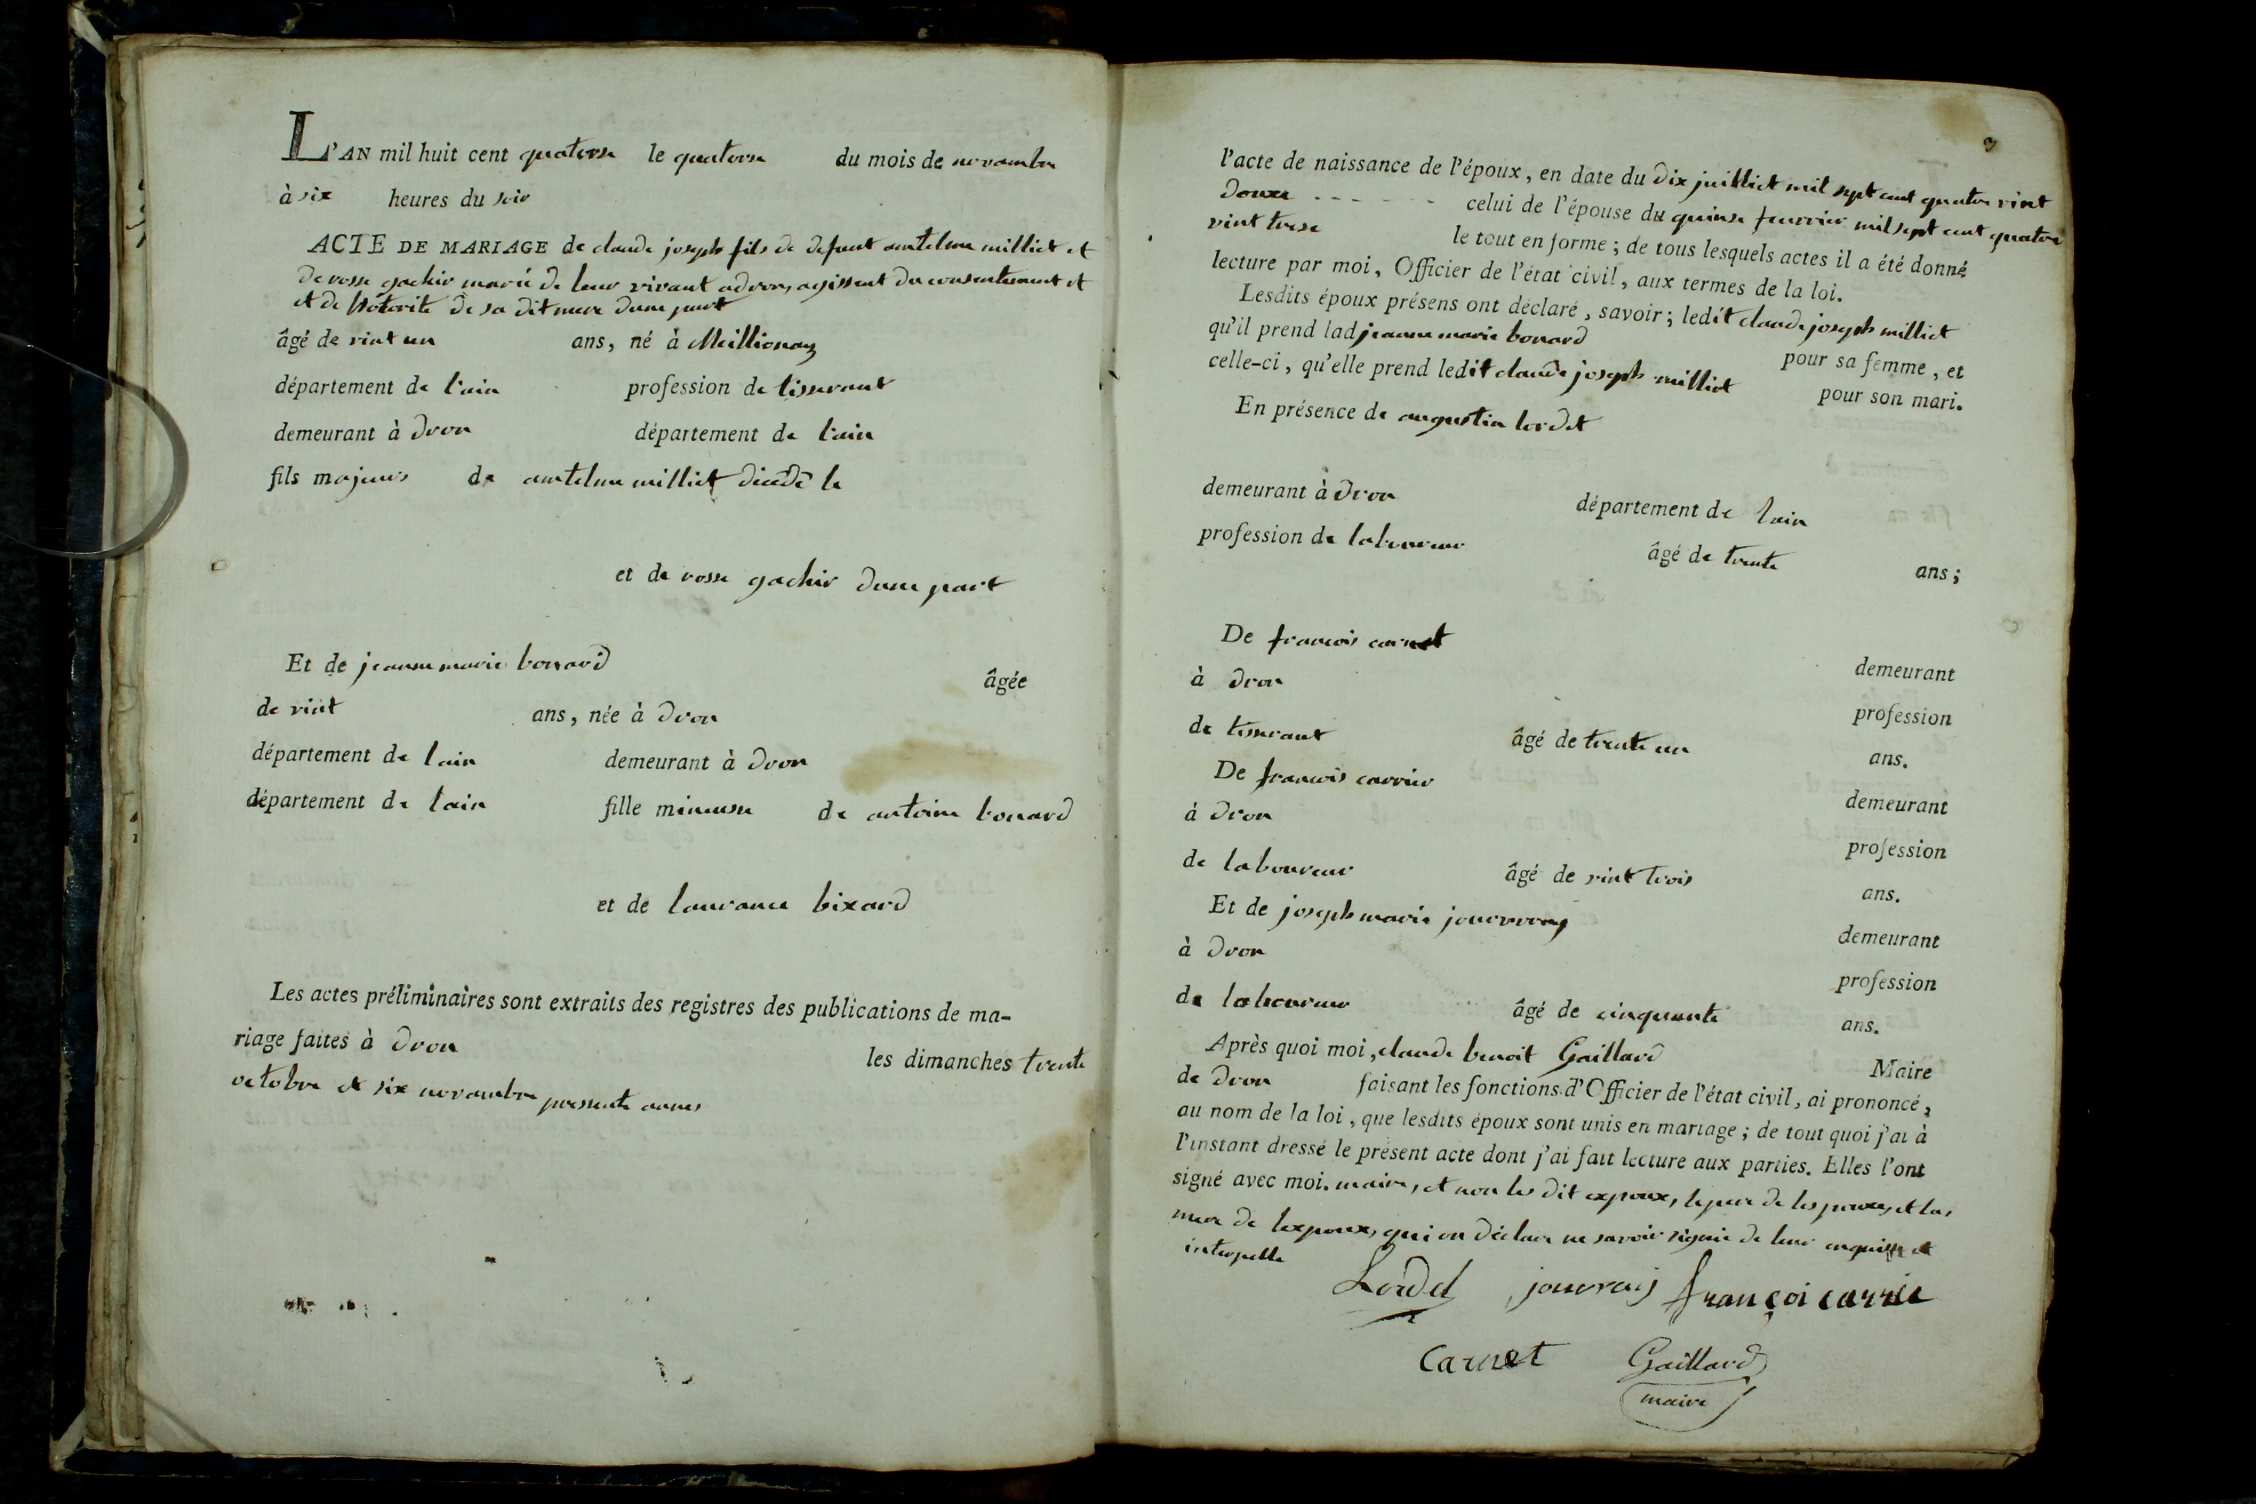 L'AN mil huit cent quatorse le quatorse du mois de novambre
à six heures du soir
ACTE DE MARIAGE de claude joseph fils de defunt antelme milliet et
de rosse gachir marié de leur vivant a dron, agissent du consentement et
et de lotorité de sa dit mere dune part
âgé de vint un ans, né à Meillionaz
département de l'ain profession de tisserant
demeurant à dron département de l'ain
fils majeur de antelme milliet décédé le
et de rosse gachir dune part
Et de jeanne marie bonard âgée
de vint ans, née à dron
département de lain demeurant à dron
département de lain fille mineuse de antoine bonard
et de laurance bixard
Les actes préliminaires sont extraits des registres des publications de ma-
riage faites à dron les dimanches trente
octobre et six novambre presente annes
3
l'acte de naissance de l'époux, en date du dix juilliet mil sept cent quatre vint
douxe - - - - - - celui de l'épouse du quinse feurrier mil sept cent quatre
vint trese le tout en forme; de tous lesquels actes il a été donné
lecture par moi, Officier de l'état civil, aux termes de la loi.
Lesdits époux présens ont déclaré, savoir; ledit claude joseph milliet
qu'il prend lad jeanne marie bonard pour sa femme, et
celle-ci, qu'elle prend ledit claude joseph milliet pour son mari.
En présence de augustin lordet
demeurant à dron département de lain
profession de laboureur âgé de trente ans;
De francois carnet demeurant
à dron profession
de tisserant âgé de trente un ans.
De francois carrier demeurant
à dron profession
de laboureur âgé de vint trois ans.
Et de joseph marie demeurant
à dron profession
de laboureur âgé de cinquante ans.
Après quoi moi, claude benoit Gaillard Maire
de dron faisant les fonctions d'Officier de l'état civil, ai prononcé,
au nom de la loi, que lesdits époux sont unis en mariage; de tout quoi j'ai à
l'instant dressé le présent acte dont j'ai fait lecture aux parties. Elles l'ont
signé avec moi. maire, et non les dit expoux, le pere de les pouxe, et las
mere de lexpoux, qui on déclare ne savoir signie de leur enquise et
interpelle
Lordet jouvray françoi carrie
Carnet Gaillard
maire